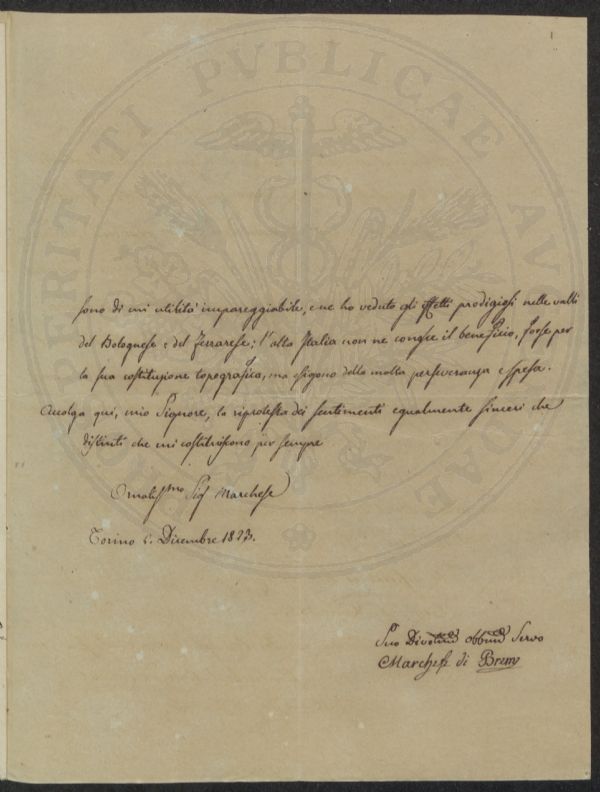 1
sono di un utilità impareggiabile, e ne ho veduto gli effetti prodigiosi nelle valli
del Bolognese e del Ferrarese; l'alta Italia non ne conosce il beneficio, forse per
la sua costituzione topografica, ma esigono della molta perseveranza e spesa.
Accolga qui, mio Signore, la riprotesta dei sentimenti egualmente sinceri che
distinti che mi costituiscono per sempre
Ornatissmo Sig Marchese
Torino 5. Dicembre 1823.
Suo Servo
Marchese di Breme
PROSPERITATI PVBLICAE AVGENDAE